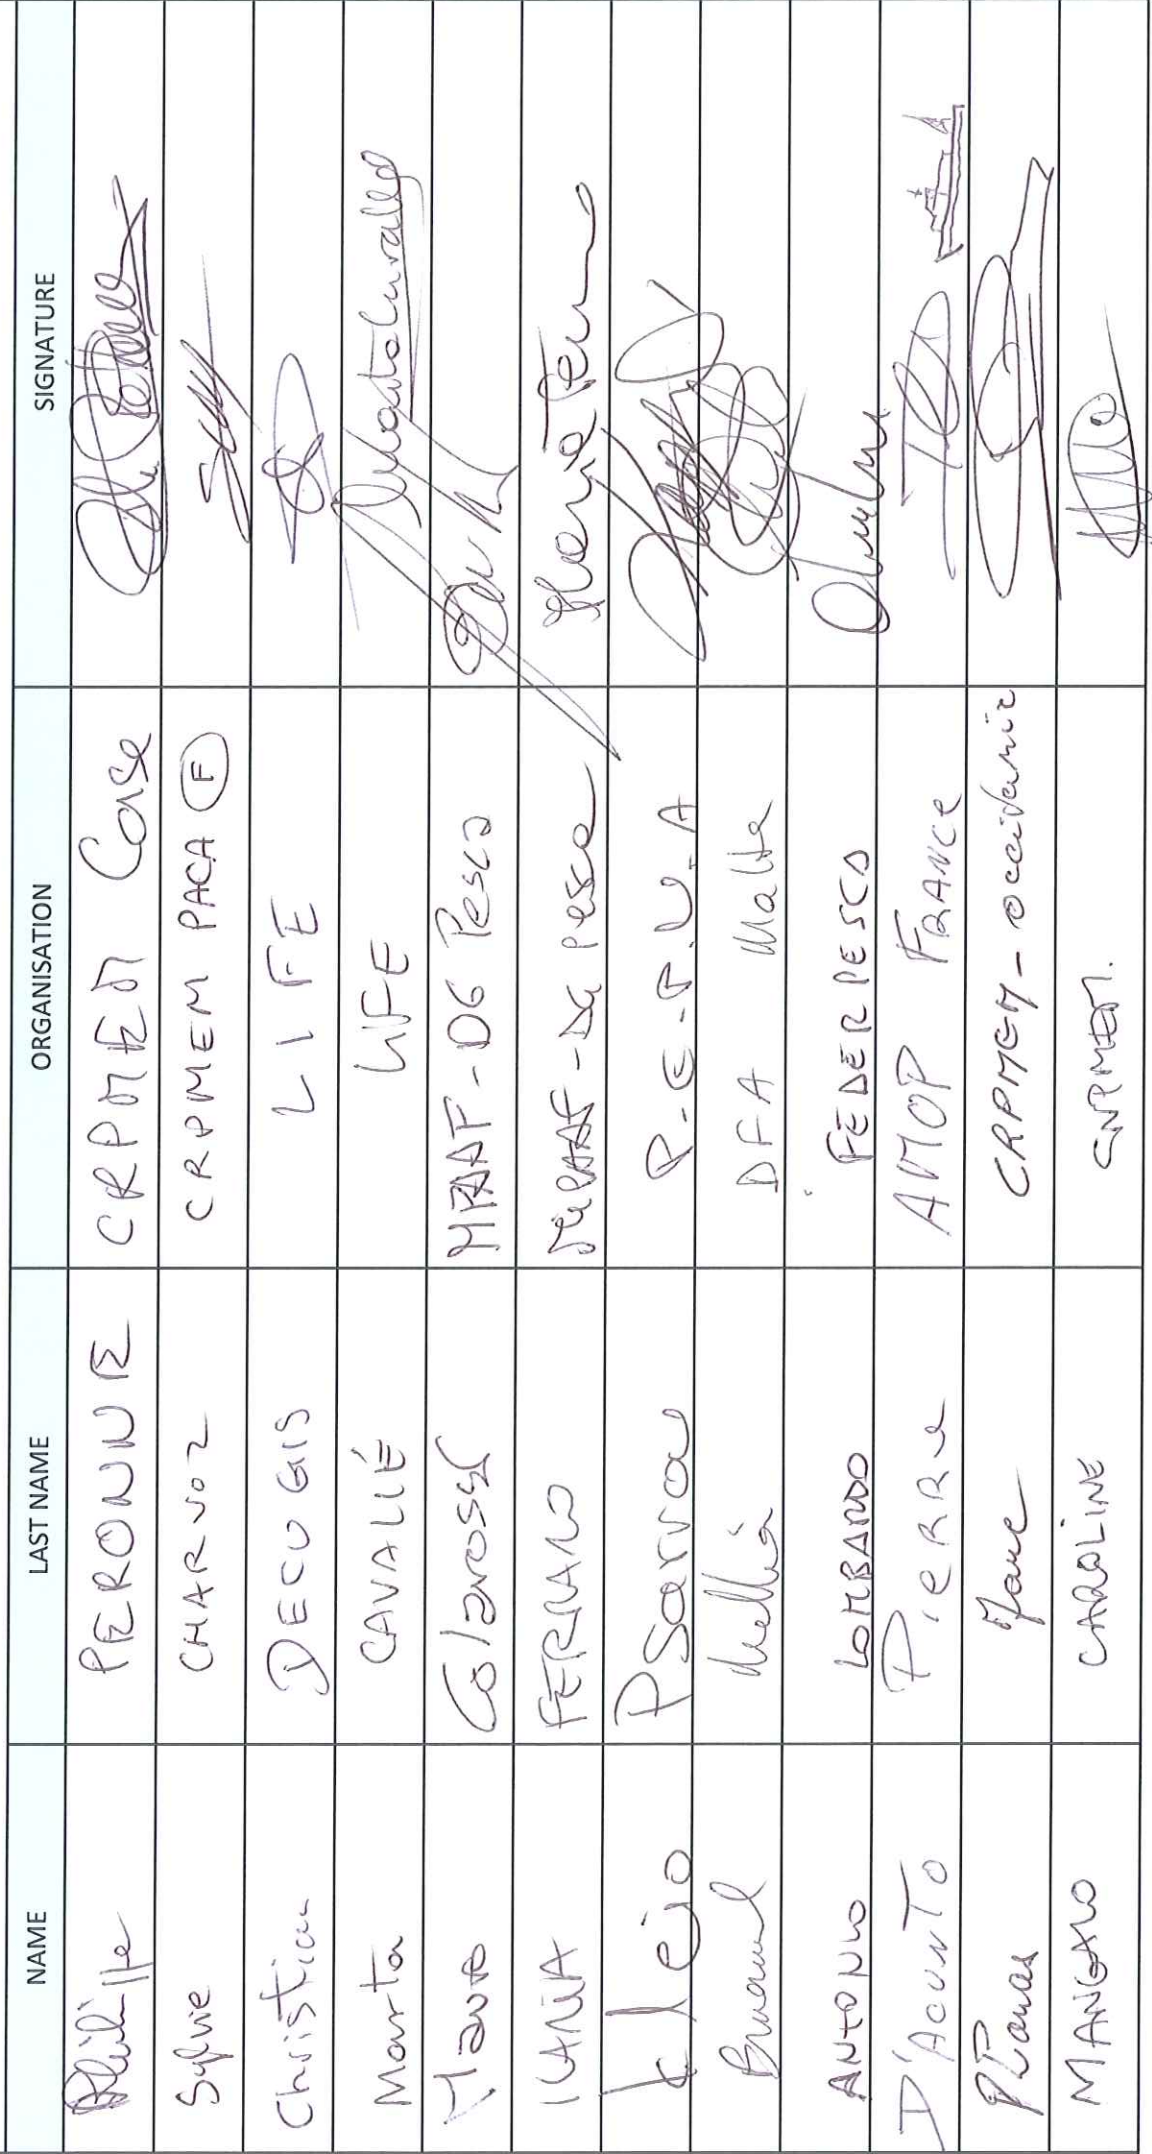 NAME LAST NAME ORGANISATION SIGNATURE
Philippe PERONNE CRPMEM Corse
Sylvie CHARVOZ CRPMEM PACA F
Christian DECUGIS LIFE
Marta CAVALLÉ LIFE
Mauro Colarossi MIPAAF-DG Pesca
ILARIA FERRARO MIPAAF-DG Pesca Ilaria Ferraro
Kleio Psarrou P.E.P.M.A
Mellià DFA Malta
ANTONIO LOMBARDO FEDERPESCA
D'ACUNTO Pierre AMOP FRANCE
PLanas Marc CRPMEM-occitanie
MANGANO CAROLINE CNPMEM.